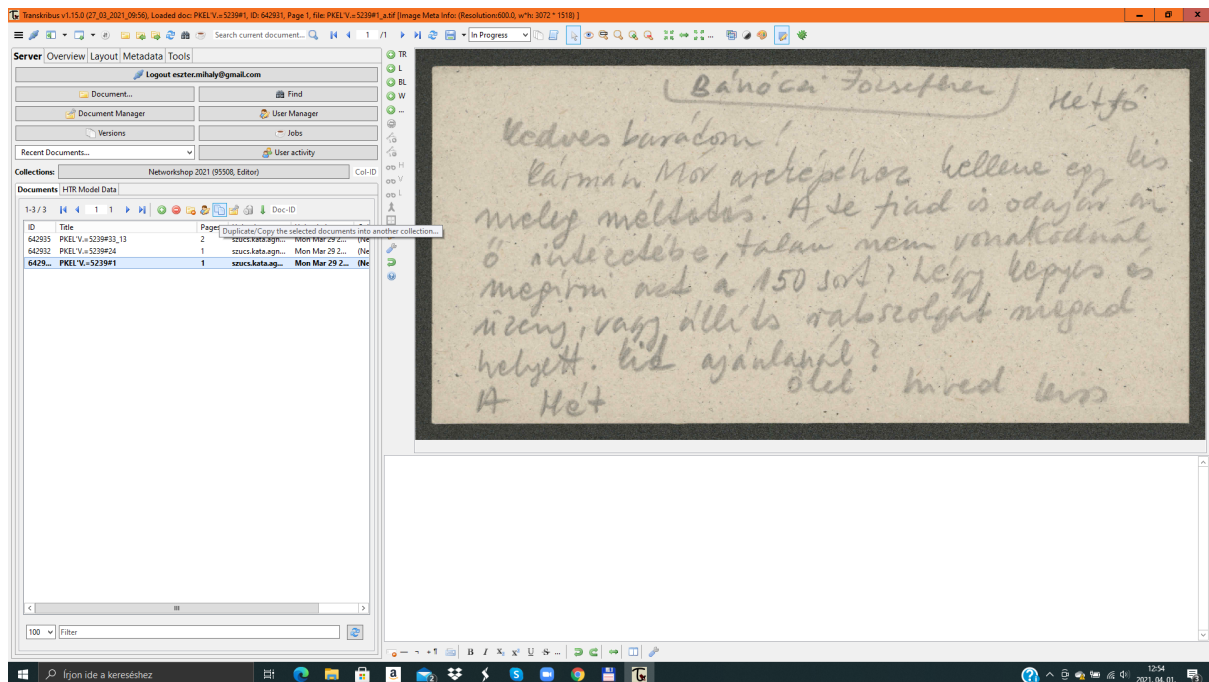 Transkribus v1.15.0 (27_03_2021_09:56), Loaded doc: PKEL'V.=5239#1, ID: 642931, Page 1, file: PKEL'V.=5239#1_a.tif [Image Meta Info: (Resolution:600.0, w*h: 3072 * 1518) ]
Search current document...
1 /1
In Progress
Server Overview Layout Metadata Tools
Logout eszter.mihaly@gmail.com
Document... Find
Document Manager User Manager
Versions Jobs
Recent Documents... User activity
Collections: Networkshop 2021 (95508, Editor) Col-ID
Documents HTR Model Data
1-3 / 3 1 1 Doc-ID
ID Title Pages
Duplicate/Copy the selected documents into another collection...
642935 PKEL'V.=5239#33_13 2 szucs.kata.ag... Mon Mar 29 2... (Ne
642932 PKEL'V.=5239#24 1 szucs.kata.agn... Mon Mar 29 2... (Ne
6429... PKEL'V.=5239#1 1 szucs.kata.ag... Mon Mar 29 2... (Ne
100 Filter
TR
L
BL
W
...
H
V
L
(Bánóczi Józsefhez) Hétfő
Kedves barátom!
Kármán Mór arcképéhez kellene egy kis
meleg méltatás. A te fiad is odajár az
ő intézetébe, talán nem vonakodnál
megírni azt a 150 sort? Légy kegyes és
üzenj, vagy állíts rabszolgát magad
helyett. Kit ajánlanál?
ölel híved Kiss
A Hét
B I X₁ X¹ U S ...
Írjon ide a kereséshez
12:54
2021. 04. 01.